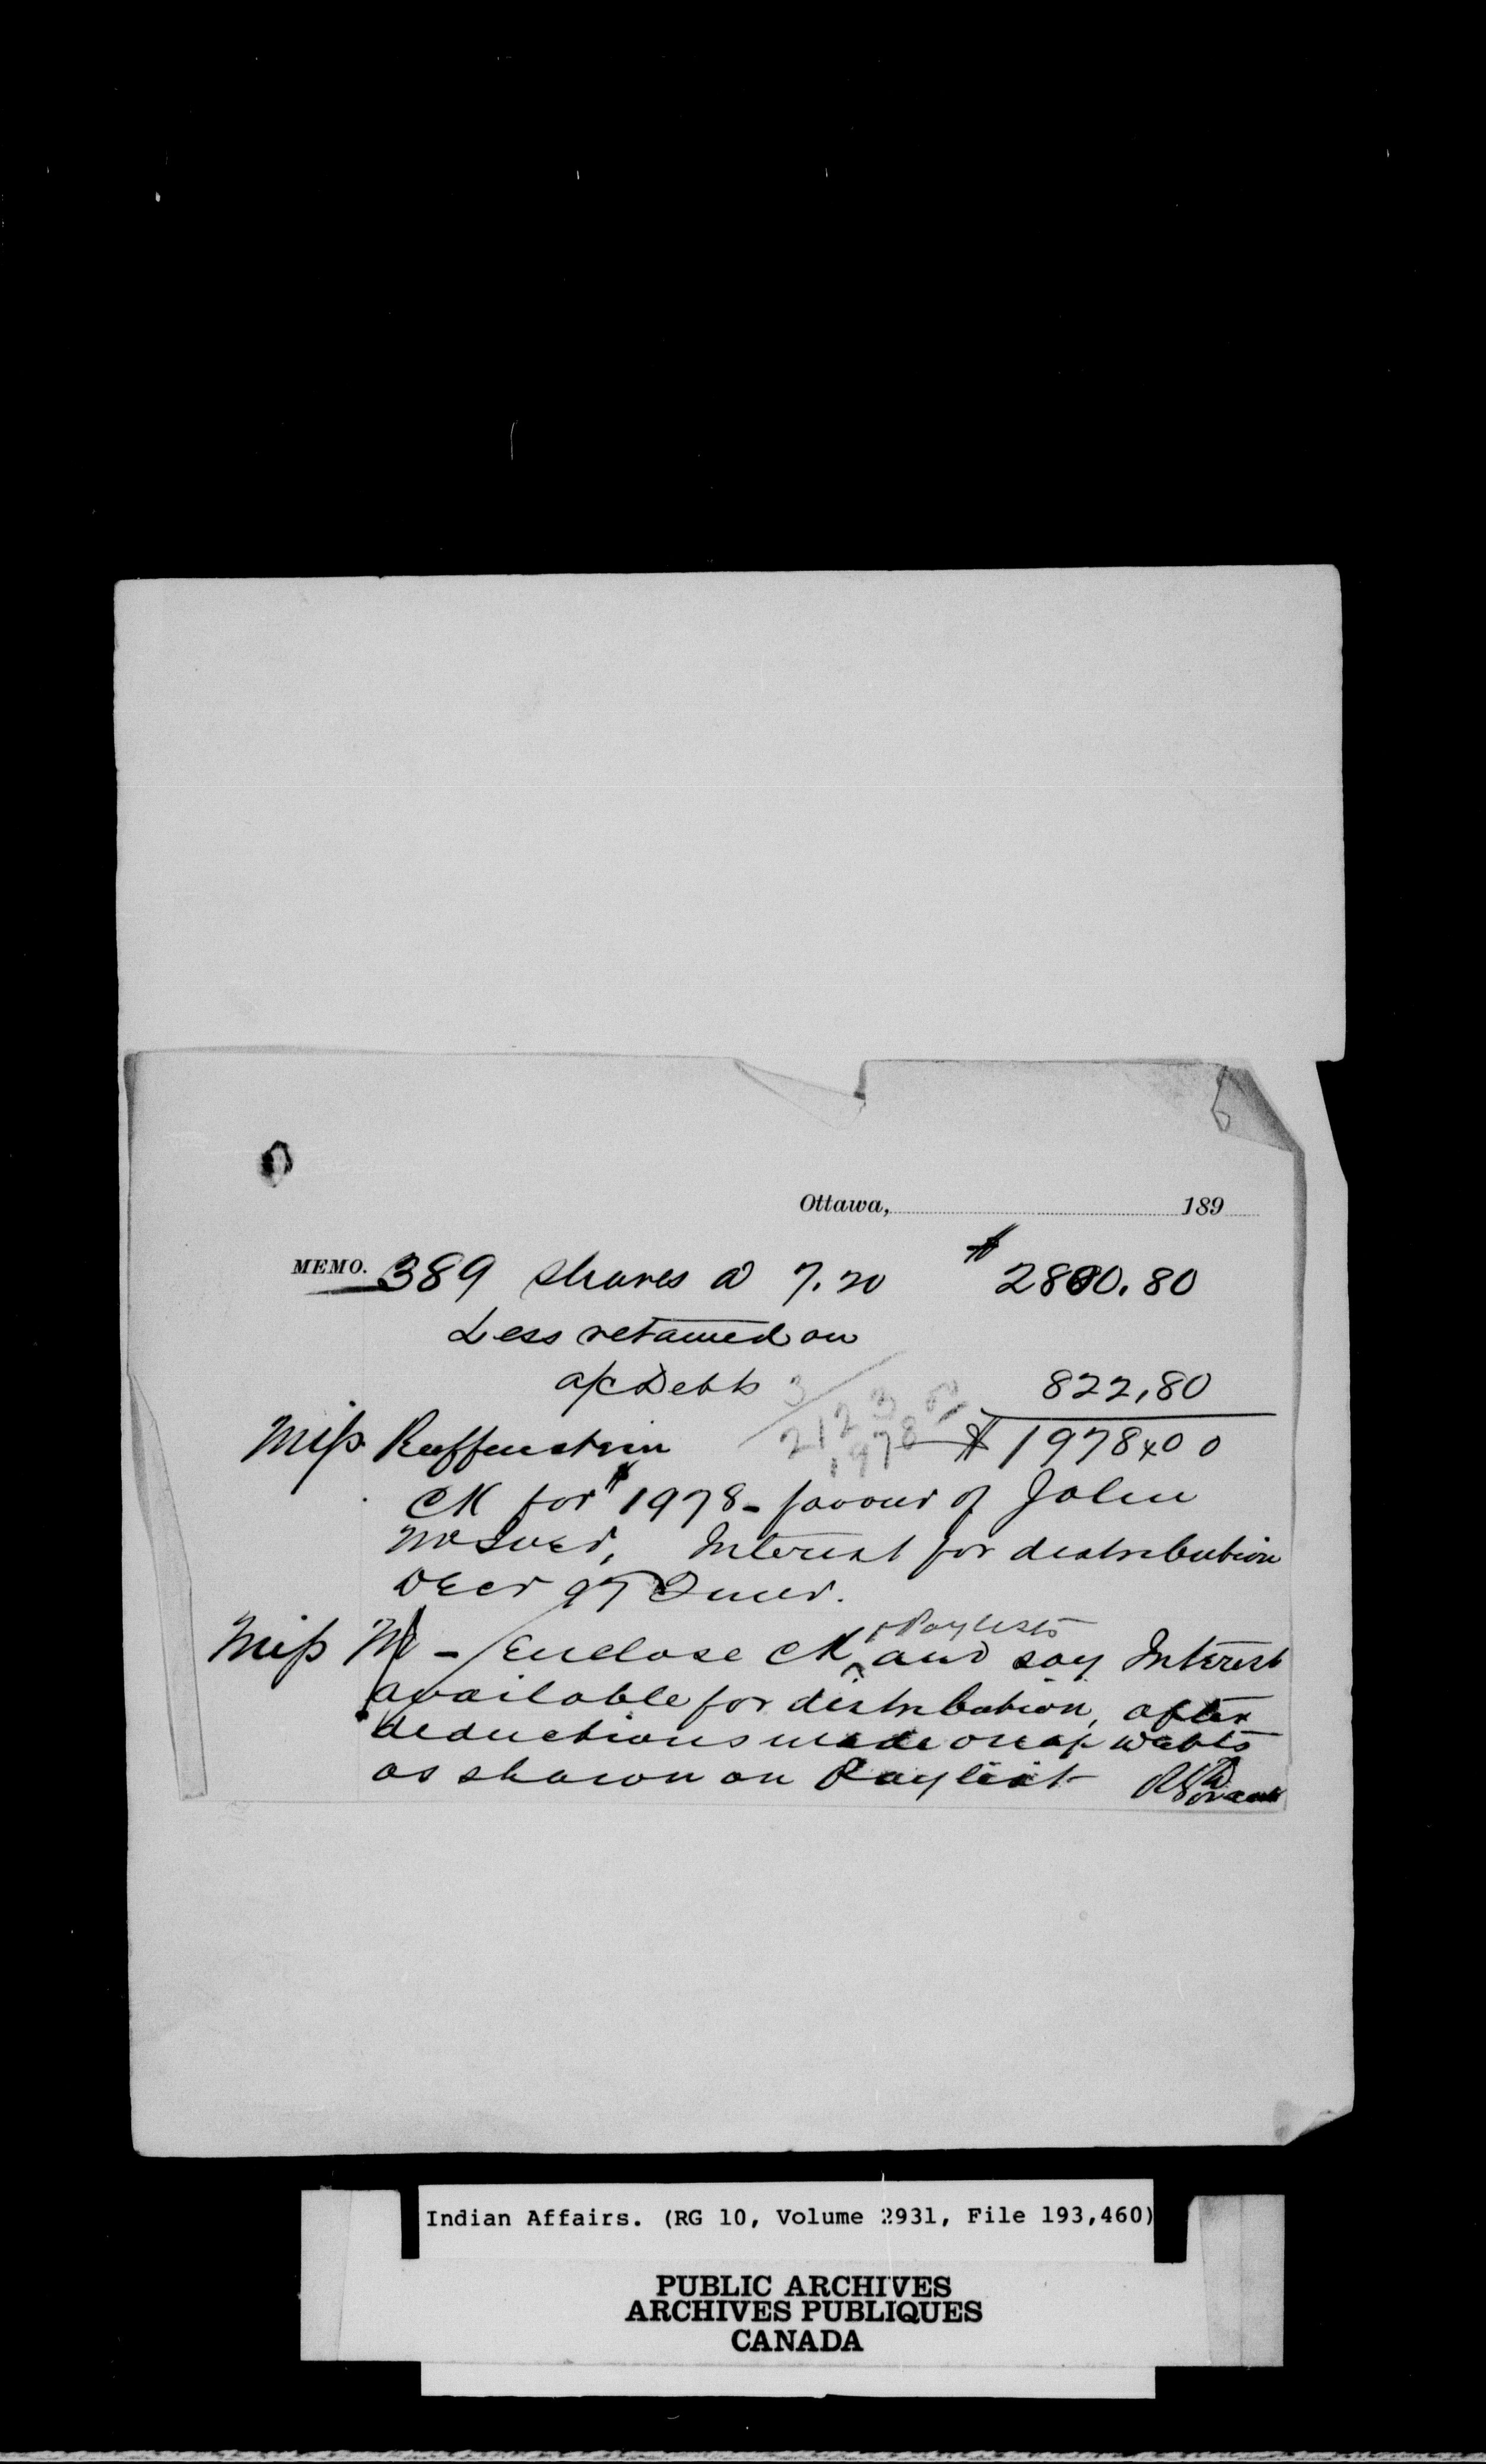 Ottawa, 189
MEMO. 389 shares @ 7.20 $2800.80
Less retained on
a/c Debts 822.80
Miss Reiffenstein $1978.00
CK for $1978- favour of John
McIver, Interest for distribution
Decr 97
Miss M - Enclose CK + Paylists and say Interest
available for distribution, after
deductions made on a/c debts
as shown on Paylist
Indian Affairs. (RG 10, Volume 2931, File 193,460)
PUBLIC ARCHIVES
ARCHIVES PUBLIQUES
CANADA